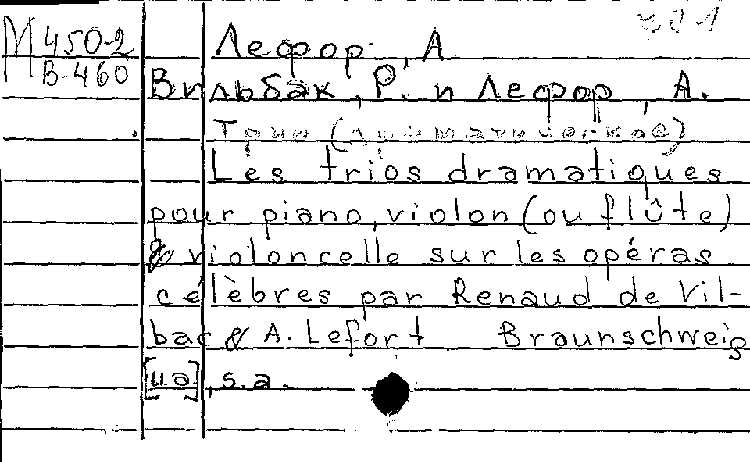 М 450-2
В-460
Лефор, А
Вильбак, Р. и Лефор, А.
Трио (драматические)
Les trios dramatiques
pour piano, violon (ou flûte)
& violoncelle sur les opéras
célèbres par Renaud de Vil-
bac & A. Lefort Braunschweig
, s.a.